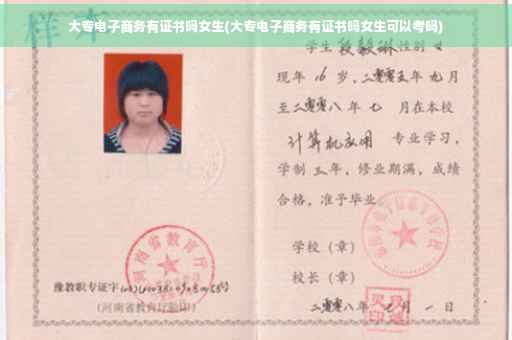 大专电子商务有证书吗女生(大专电子商务有证书吗女生可以考吗)
样本
学生 性别 女
现年 16 岁，二零零五年 九 月
至二零零八 年 七 月在本校
计算机应用 专业学习，
学制 三 年，修业期满，成绩
合格，准予毕业
学校（章）
校长（章）
二零零八年 七 月 一 日
河南省教育厅
豫教职专证字
(河南省教育厅监印)